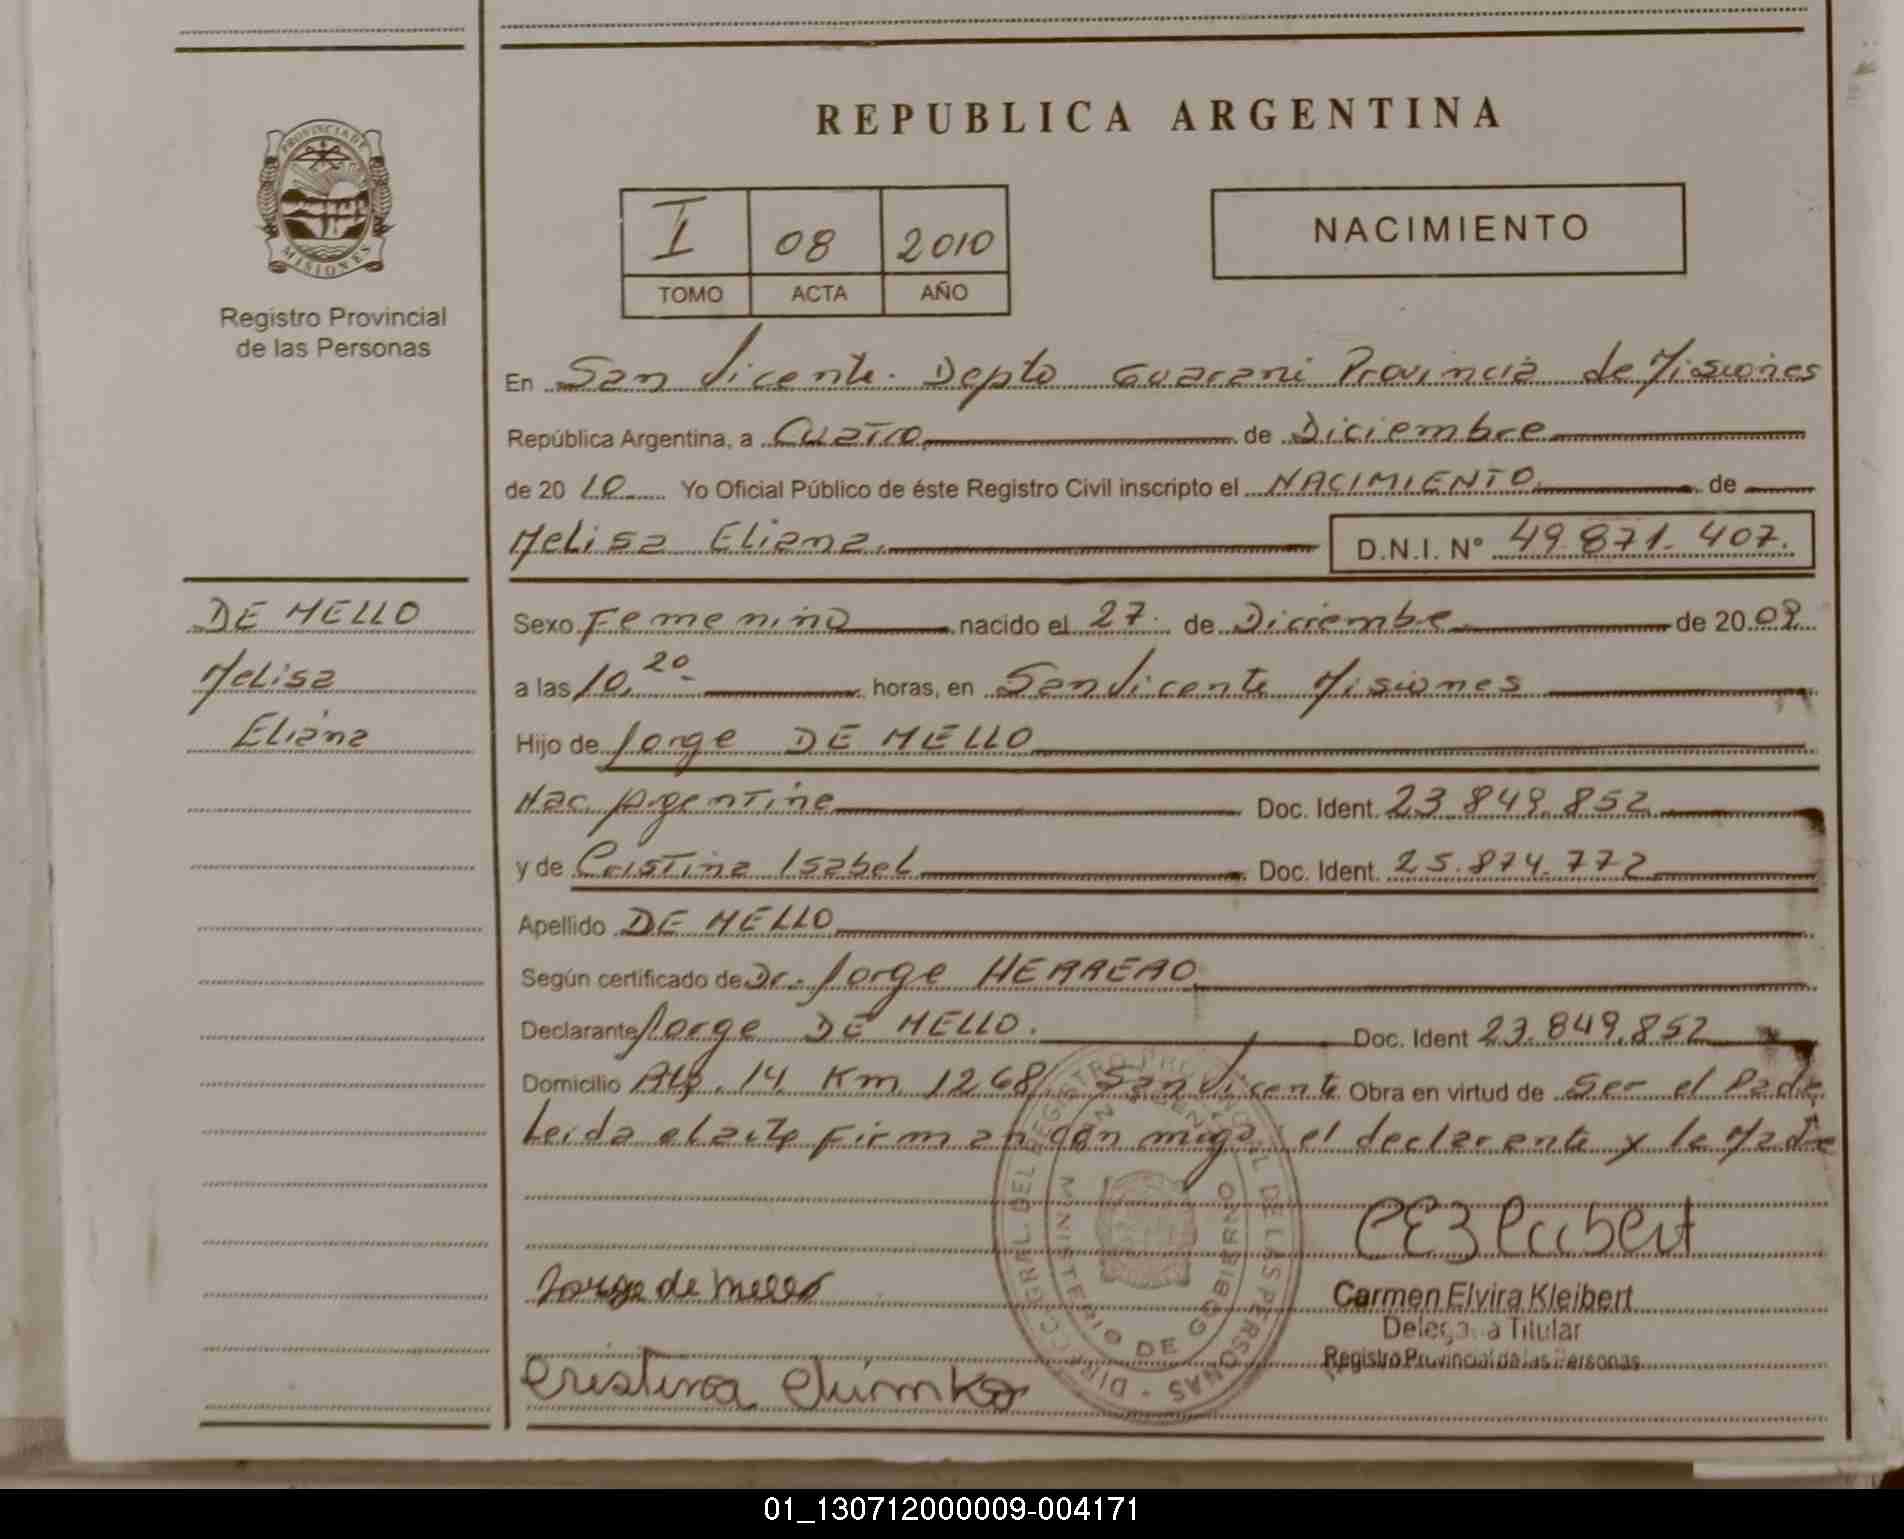 REPUBLICA ARGENTINA
PROVINCIA DE
MISIONES
Registro Provincial
de las Personas
I 08 2010
TOMO ACTA AÑO
NACIMIENTO
En San Vicente. Depto Guarani Provincia de Misiones
República Argentina, a Cuatro de Diciembre
de 2010 Yo Oficial Público de éste Registro Civil inscripto el NACIMIENTO de
Melisa Eliana. D.N.I. Nº 49.871.407.
DE MELLO
Melisa
Eliana
Sexo Femenino nacido el 27. de Diciembe de 2009
a las 10,20 horas, en San Vicente Misiones
Hijo de Jorge DE MELLO
Nac. Argentine Doc. Ident. 23.849.852
y de Cristina Isabel Doc. Ident. 25.874.772
Apellido DE MELLO
Según certificado de Dr. Jorge HERRERO
Declarante Jorge DE MELLO. Doc. Ident 23.849.852
Domicilio 14 Km 1268 San Vicente Obra en virtud de Ser el Padre
Leida el firman con migo: el declarante y la Madre
DIRECC. GRAL DEL REGISTRO PROVINCIAL DE LAS PERSONAS
MINISTERIO DE GOBIERNO
Jorge de mello
Carmen Elvira Kleibert
Delegada Titular
Registro Provincial de las Personas
Cristina
01_130712000009-004171